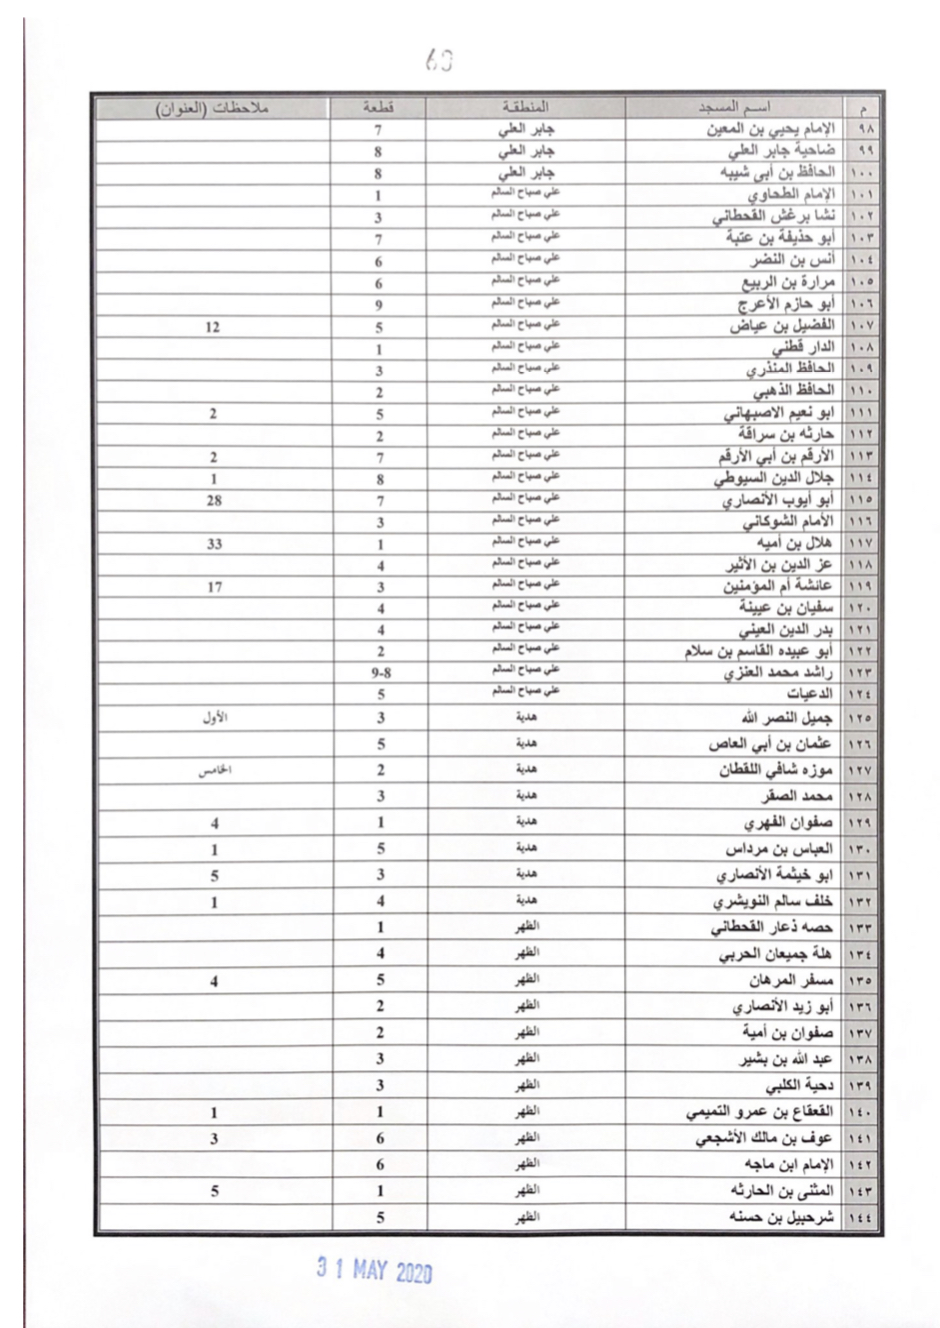 60
م اسم المسجد المنطقة قطعة ملاحظات (العنوان)
٩٨ الإمام يحيي بن المعين جابر العلي 7
٩٩ ضاحية جابر العلي جابر العلي 8
١٠٠ الحافظ بن أبي شيبه جابر العلي 8
١٠١ الإمام الطحاوي علي صباح السالم 1
١٠٢ نشا برغش القحطاني علي صباح السالم 3
١٠٣ أبو حذيفة بن عتبة علي صباح السالم 7
١٠٤ أنس بن النضر علي صباح السالم 6
١٠٥ مرارة بن الربيع علي صباح السالم 6
١٠٦ أبو حازم الأعرج علي صباح السالم 9
١٠٧ الفضيل بن عياض علي صباح السالم 5 12
١٠٨ الدار قطني علي صباح السالم 1
١٠٩ الحافظ المنذري علي صباح السالم 3
١١٠ الحافظ الذهبي علي صباح السالم 2
١١١ ابو نعيم الاصبهاني علي صباح السالم 5 2
١١٢ حارثه بن سراقة علي صباح السالم 2
١١٣ الأرقم بن أبي الأرقم علي صباح السالم 7 2
١١٤ جلال الدين السيوطي علي صباح السالم 8 1
١١٥ أبو أيوب الأنصاري علي صباح السالم 7 28
١١٦ الأمام الشوكاني علي صباح السالم 3
١١٧ هلال بن أميه علي صباح السالم 1 33
١١٨ عز الدين بن الأثير علي صباح السالم 4
١١٩ عائشة أم المؤمنين علي صباح السالم 3 17
١٢٠ سفيان بن عيينة علي صباح السالم 4
١٢١ بدر الدين العيني علي صباح السالم 4
١٢٢ أبو عبيده القاسم بن سلام علي صباح السالم 2
١٢٣ راشد محمد العنزي علي صباح السالم 9-8
١٢٤ الدعيات علي صباح السالم 5
١٢٥ جميل النصر الله هدية 3 الأول
١٢٦ عثمان بن أبي العاص هدية 5
١٢٧ موزه شافي اللقطان هدية 2 الخامس
١٢٨ محمد الصقر هدية 3
١٢٩ صفوان الفهري هدية 1 4
١٣٠ العباس بن مرداس هدية 5 1
١٣١ ابو خيثمة الأنصاري هدية 3 5
١٣٢ خلف سالم النويشري هدية 4 1
١٣٣ حصه ذعار القحطاني الظهر 1
١٣٤ هلة جميعان الحربي الظهر 4
١٣٥ مسفر المرهان الظهر 5 4
١٣٦ أبو زيد الأنصاري الظهر 2
١٣٧ صفوان بن أمية الظهر 2
١٣٨ عبد الله بن بشير الظهر 3
١٣٩ دحية الكلبي الظهر 3
١٤٠ القعقاع بن عمرو التميمي الظهر 1 1
١٤١ عوف بن مالك الأشجعي الظهر 6 3
١٤٢ الإمام ابن ماجه الظهر 6
١٤٣ المثنى بن الحارثه الظهر 1 5
١٤٤ شرحبيل بن حسنه الظهر 5
31 MAY 2020